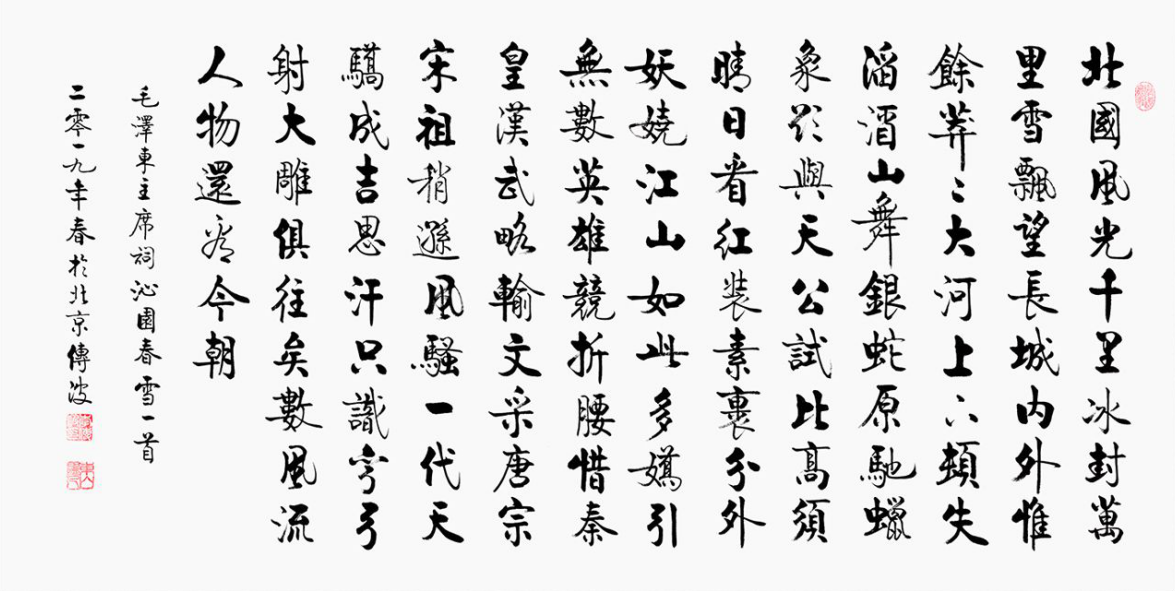 北國風光千里冰封萬
里雪飄望長城内外惟
餘莽〻大河上下頓失
滔滔山舞銀蛇原馳蠟
象欲與天公試比高須
晴日看紅裝素裹分外
妖嬈江山如此多嬌引
無數英雄競折腰惜秦
皇漢武略輸文采唐宗
宋祖稍遜風騷一代天
驕成吉思汗只識彎弓
射大雕俱往矣數風流
人物還看今朝
毛澤東主席詞沁園春雪一首
二零一九年春於北京傳波